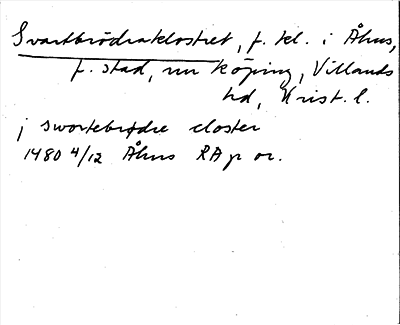 Svartbrödraklostret, f. kl. i Åhus,
f. stad, nu köping, Villands
hd, Krist. l.
j swortebrødre closter
1480 4/12 Åhus RAp or.